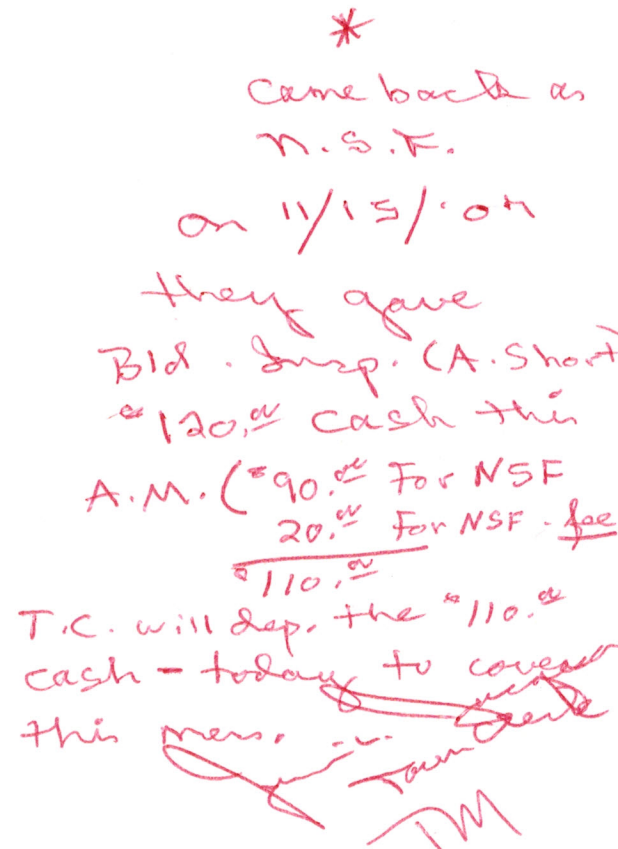 *
came back as
N.S.F.
on 11/15/04
they gave
Bld. Insp. (A. Short)
$120.00 cash this
A.M. ($90.00 For NSF
20.00 For NSF - fee
$110.00
T.C. will dep. the $110.00
cash - today to cover
this
Town Clerk
TM